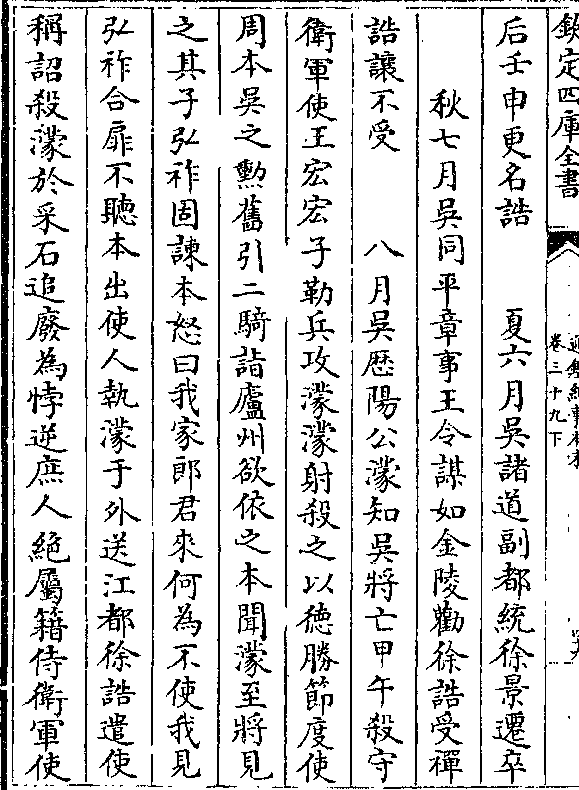 欽定四庫全書
卷三十九下
后壬申更名誥　夏六月吳諸道副都統徐景遷卒
秋七月吳同平章事王令謀如金陵勸徐誥受禪
誥讓不受　八月吳歴陽公濛知吳將亡甲午殺守
衛軍使王宏宏子勒兵攻濛濛射殺之以徳勝節度使
周本吳之勲舊引二騎詣廬州欲依之本聞濛至將見
之其子弘祚固諫本怒曰我家郎君來何為不使我見
弘祚合扉不聽本出使人執濛于外送江都徐誥遣使
稱詔殺濛於采石追廢為悖逆庶人絶屬籍侍衛軍使